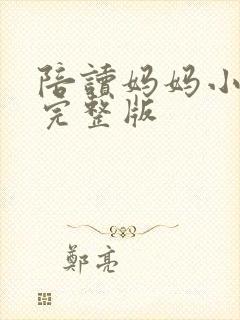 陪讀妈妈小
完整版
鄭亮